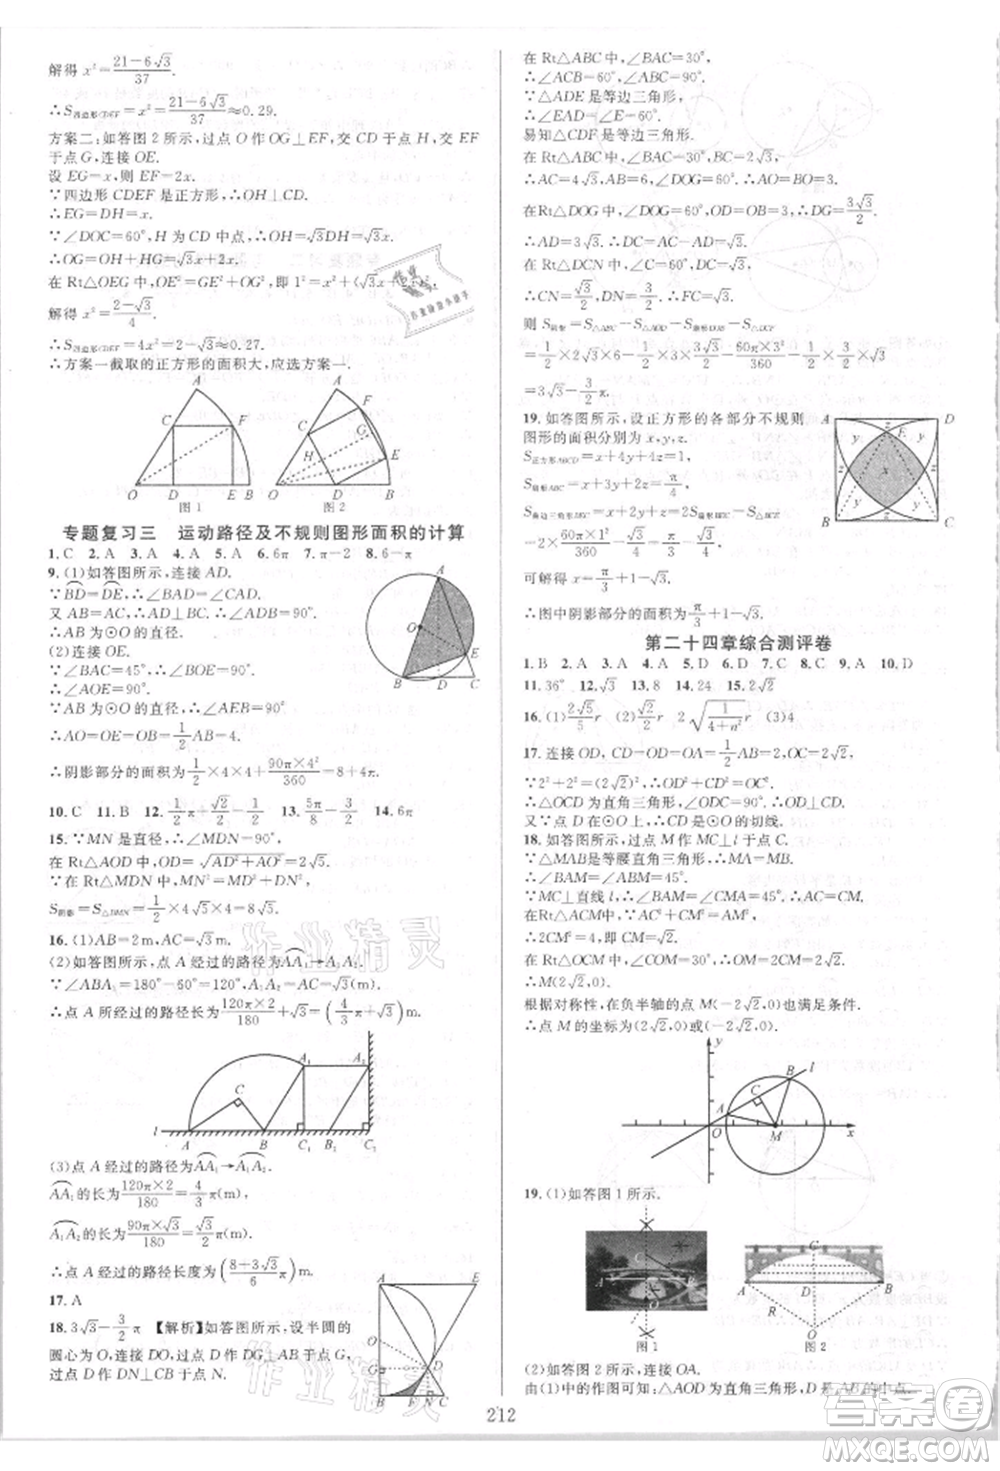 解得 x²=(21-6√3)/37.
∴S四边形CDEF=x²=(21-6√3)/37≈0.29.
方案二:如答图 2 所示,过点 O 作 OG⊥EF,交 CD 于点 H,交 EF
于点 G,连接 OE.
设 EG=x,则 EF=2x.
∵四边形 CDEF 是正方形,∴OH⊥CD.
∴EG=DH=x.
∵∠DOC=60°,H 为 CD 中点,∴OH=√3DH=√3x.
∴OG=OH+HG=√3x+2x.
在 Rt△OEG 中,OE²=EG²+OG²,即 1²=x²+(√3x+2x)².
解得 x²=(2-√3)/4.
∴S四边形CDEF=4x²=2-√3≈0.27.
∴方案一截取的正方形的面积大,应选方案一.
A C F O D E B 图 1
A C G F H E O D B 图 2
专题复习三 运动路径及不规则图形面积的计算
1. C 2. A 3. A 4. A 5. A 6. 6π 7. π-2 8. 6-π
9. (1)如答图所示,连接 AD.
∵BD=DE,∴∠BAD=∠CAD.
又 AB=AC,∴AD⊥BC,∴∠ADB=90°.
∴AB 为⊙O 的直径.
(2)连接 OE.
∵∠BAC=45°,∴∠BOE=90°.
∴∠AOE=90°.
∵AB 为⊙O 的直径,∴∠AEB=90°.
∴AO=OE=OB=1/2AB=4.
∴阴影部分的面积=1/2×4×4+(90π×4²)/360=8+4π.
A O E B D C
10. C 11. B 12. 1/2π+√2/2-1/2 13. 5π/8-3/2 14. 6π
15. ∵MN 是直径,∴∠MDN=90°.
在 Rt△AOD 中,OD=√(AD²+AO²)=2√5.
∵在 Rt△MDN 中,MN=4√5,
S阴影=S△DMN=1/2×4√5×2√5=20.
16. (1)AB=2 m,AC=√3 m.
(2)如答图所示,点 A 运动的路径为AA₁→A₁A₂.
∵∠ABA₁=180°-60°=120°,A₁A₂=AC=√3(m).
∴点 A 所经过的路径长为(120π×2)/180+√3=(4/3π+√3)m.
A₁ A₂ C l A B C₁ B₂ C₂
(3)点 A 经过的路径为AA₁→A₁A₂.
AA₁的长为(120π×2)/180=4/3π(m).
A₁A₂的长为(90π×√3)/180=√3/2π(m).
∴点 A 经过的路径长度为((8+3√3)/6 π)m.
17. A
18. 3√3-3/2π 【解析】如答图所示,设半圆的
圆心为 O,连接 DO,过点 D 作 DG⊥AB 于点
G,过点 D 作 DN⊥CB 于点 N.
A E O G D B F N C
在 Rt△ABC 中,∠BAC=30°.
∴∠ACB=60°,∠ABC=90°.
∵△ADE 是等边三角形,
∴∠EAD=∠E=60°.
易知△CDF 是等边三角形.
在 Rt△DOG 中,
∵∠BAC=30°,∴∠DOG=60°,AO=BO=3.
∴∠DOG=60°,OD=OB=3,∴DG=3√3/2.
∴AD=3√3,∴DC=AC-AD=√3.
在 Rt△DCN 中,∠C=60°,DC=√3.
∴CN=√3/2,DN=3/2,FC=√3.
则 S阴影=S△ABC-S△AOD-S扇形DOB-S△DCF
=1/2×2√3×6-1/2×3×3√3/2-(60π×3²)/360-1/2×√3×3/2
=3√3-3/2π.
19. 如答图所示,设正方形的各部分不规则
图形的面积分别为 x,y,z.
S正方形ABCD=x+4y+4z=1,
S扇形ABC=x+3y+2z=π/4,
S曲边三角形EBC=x+2y+z
=2×(60π×1²)/360-√3/4=π/3-√3/4.
可解得 x=π/3+1-√3.
∴图中阴影部分的面积为π/3+1-√3.
A D z E y y z x z y y z B C
第二十四章综合测评卷
1. B 2. A 3. A 4. A 5. D 6. D 7. C 8. C 9. A 10. D
11. 36° 12. √3 13. 8 14. 24 15. 2√2
16. (1)2√5/5 r (2)√2/2 r 2√(1/(4+n²)) r (3)4
17. 连接 OD,CD=OD=OA=1/2AB=2,OC=2√2.
∵2²+2²=(2√2)²,∴OD²+CD²=OC².
∴△OCD 为直角三角形,∴∠ODC=90°.
又∵点 D 在⊙O 上,∴CD 是⊙O 的切线.
18. 如答图所示,过点 M 作 MC⊥l 于点 C.
∵△MAB是等腰直角三角形,∴MA=MB.
∴∠BAM=∠ABM=45°.
∵MC⊥直线 l,∴∠BAM=∠CMA=45°,∴AC=CM.
在 Rt△ACM 中,∵AC²+CM²=AM²,
∴2CM²=4,∴CM=√2.
在 Rt△OCM 中,∠COM=30°,∴OM=2CM=2√2.
∴M(2√2,0).
根据对称性,在负半轴的点 M(-2√2,0)也满足条件.
∴点 M 的坐标为(2√2,0)或(-2√2,0).
y B l C A O M x
19. (1)如答图 1 所示.
C A B 图 1
C A D B R O 图 2
(2)如答图 2 所示,连接 OA.
由(1)中的作图可知:△AOD 为直角三角形,D 是 AB 的中点,
212
作业精灵
作业精灵
答案卷
MXQE.COM